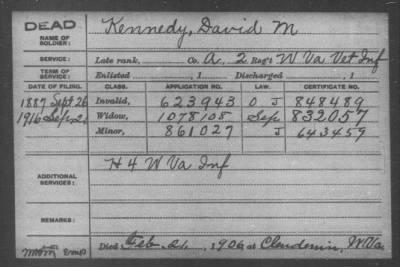 DEAD
NAME OF SOLDIER:
Kennedy, David M
SERVICE: Late rank, Co. A, 2 Reg't W Va Vet Inf
TERM OF SERVICE: Enlisted , 1 Discharged , 1
DATE OF FILING. CLASS. APPLICATION NO. LAW. CERTIFICATE NO.
1887 Sept 26 Invalid, 623943 O J 848489
1916 Sep 2 Widow, 1078108 Sep 832057
Minor, 861027 J 643459
ADDITIONAL SERVICES:
H 4 W Va Inf
REMARKS:
Died Feb 21, 1906 at W Va